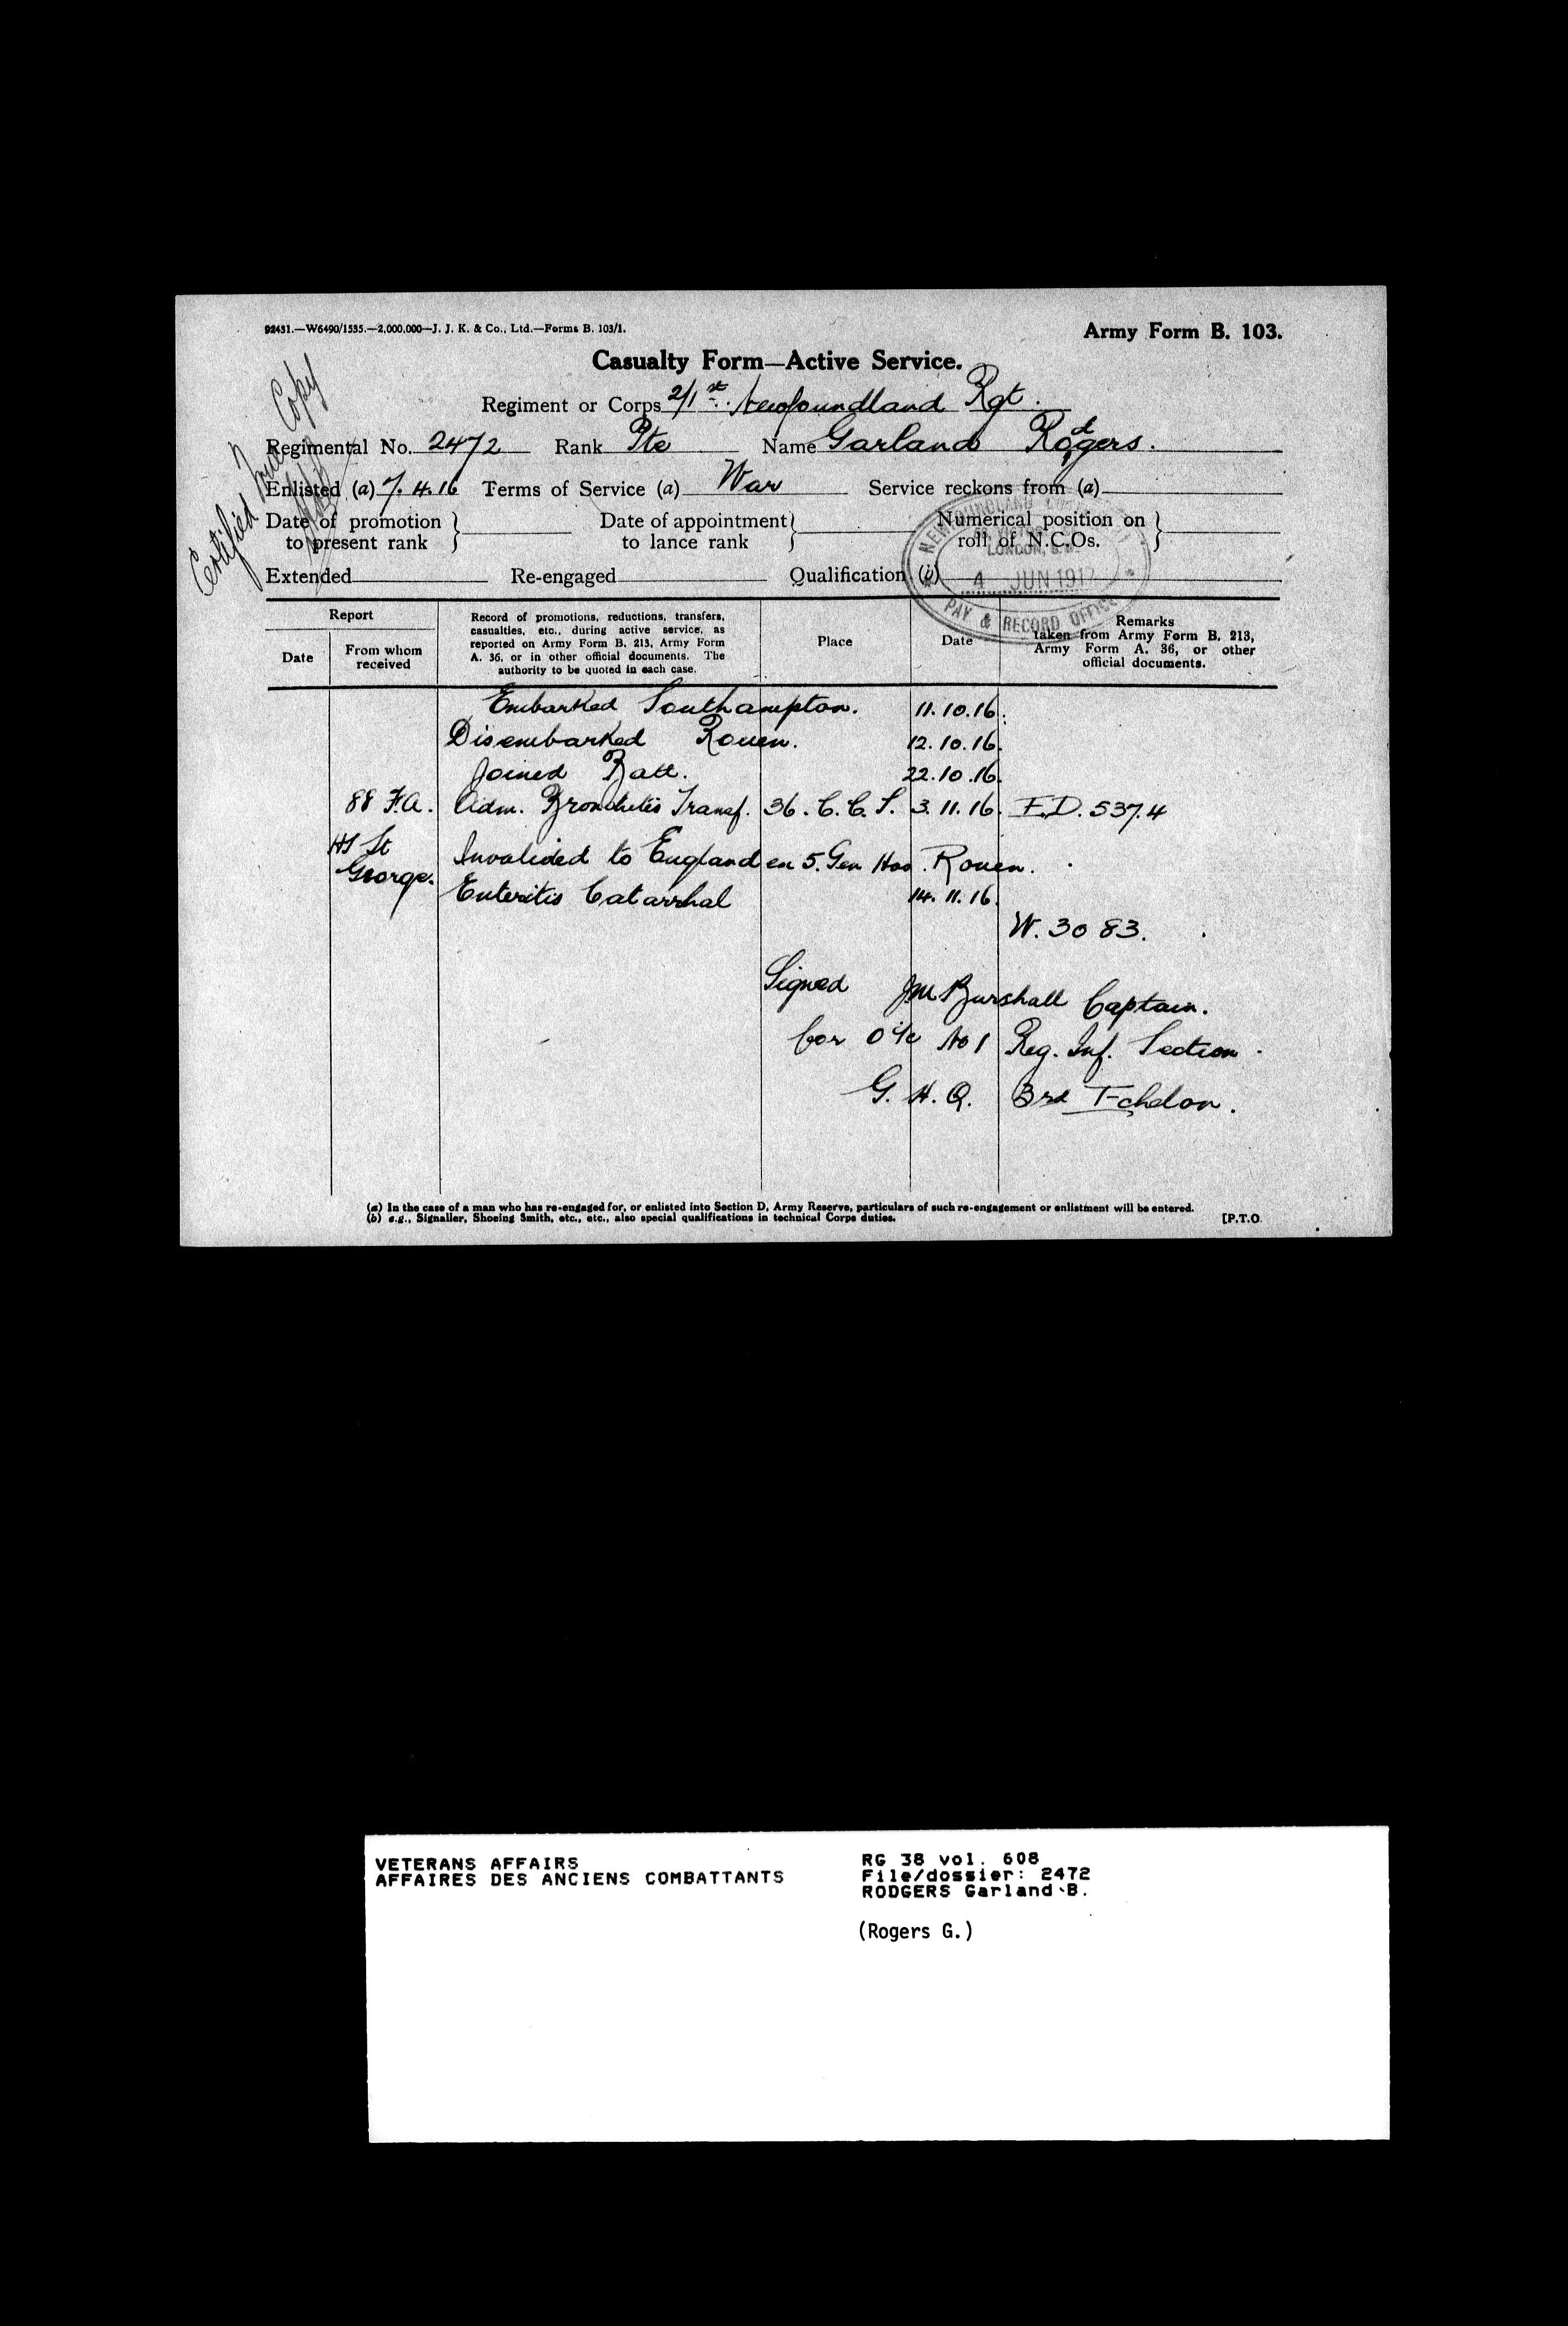 92431.—W6490/1535.—2,000,000—J. J. K. & Co., Ltd.—Forms B. 103/1.
Army Form B. 103.
Certified True Copy
Casualty Form—Active Service.
Regiment or Corps 2/1st Newfoundland Rgt.
Regimental No. 2472 Rank Pte Name Garland Rodgers.
Enlisted (a) 7.4.16 Terms of Service (a) War Service reckons from (a)
Date of promotion to present rank } Date of appointment to lance rank } Numerical position on roll of N.C.Os. }
Extended Re-engaged Qualification (b)
NEWFOUNDLAND
LONDON, S.W.
4 JUN 1917
PAY & RECORD OFFICE
Report
Date
From whom received
Record of promotions, reductions, transfers, casualties, etc., during active service, as reported on Army Form B. 213, Army Form A. 36, or in other official documents. The authority to be quoted in each case.
Place
Date
Remarks taken from Army Form B. 213, Army Form A. 36, or other official documents.
Embarked Southampton. 11.10.16.
Disembarked Rouen. 12.10.16.
Joined Batt. 22.10.16.
88 F.A. Adm. Bronchitis Transf. 36. C.C.S. 3.11.16. F.D. 5374
HS St George. Invalided to England ex 5. Gen Hos. Rouen.
Enteritis Catarrhal 14.11.16.
W. 3083.
Signed JM Burshall Captain.
for O i/c No 1 Reg. Inf. Section.
G.H.Q. 3rd Echelon.
(a) In the case of a man who has re-engaged for, or enlisted into Section D, Army Reserve, particulars of such re-engagement or enlistment will be entered.
(b) e.g., Signaller, Shoeing Smith, etc., etc., also special qualifications in technical Corps duties.
[P.T.O.
VETERANS AFFAIRS
AFFAIRES DES ANCIENS COMBATTANTS
RG 38 vol. 608
File/dossier: 2472
RODGERS Garland B.
(Rogers G.)